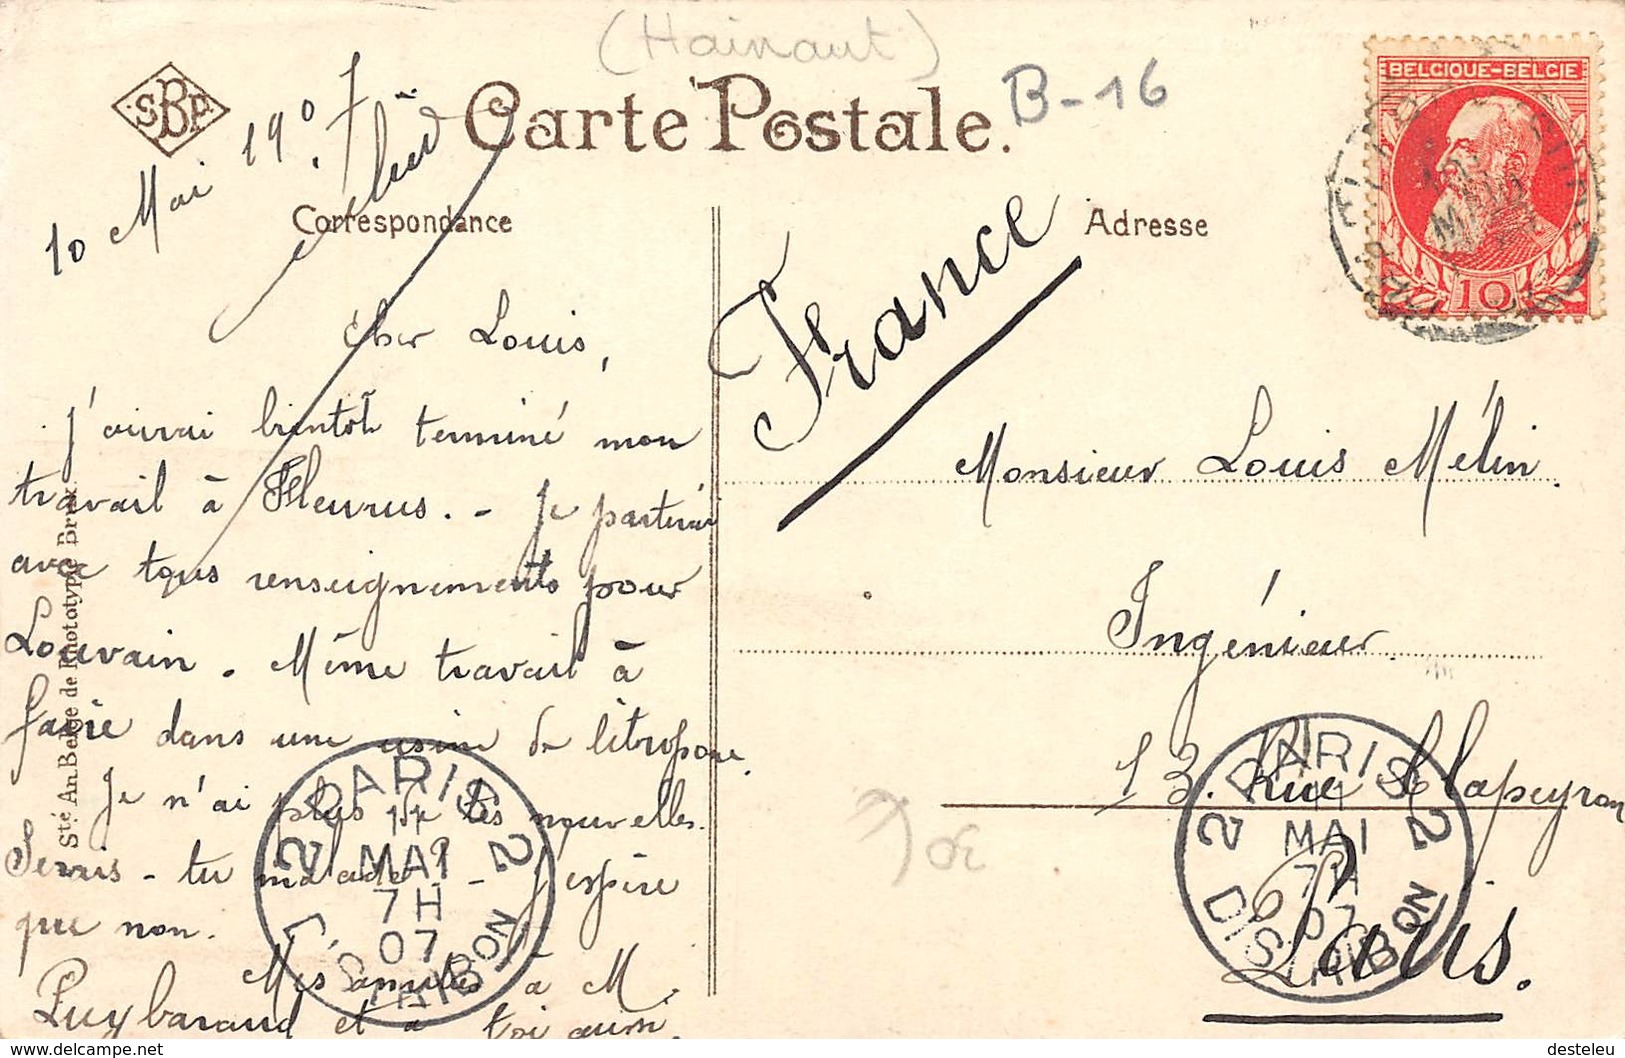 (Hainaut)
B-16
SBP
Carte Postale.
Correspondance
Adresse
BELGIQUE-BELGIE
10
10 Mai 1907
France
Cher Louis,
J'aurai bientôt terminé mon
travail à Fleurus. - Je partirai
avec tous renseignements pour
Louvain. Même travail à
faire dans une usine de litropone.
Je n'ai plus de tes nouvelles.
Serais-tu malade? - J'espère
que non.
Mes amitiés à M.
Puybaraud et à toi aussi.
Monsieur Louis Mélin
Ingénieur
13. Rue Clapeyron
Paris.
Sté An Belge de Phototypie Brux.
2 PARIS 2
11
MAI
7H
07
DISTRIBON
2 PARIS 2
11
MAI
7H
07
DISTRIBON
delcampe.net
desteleu